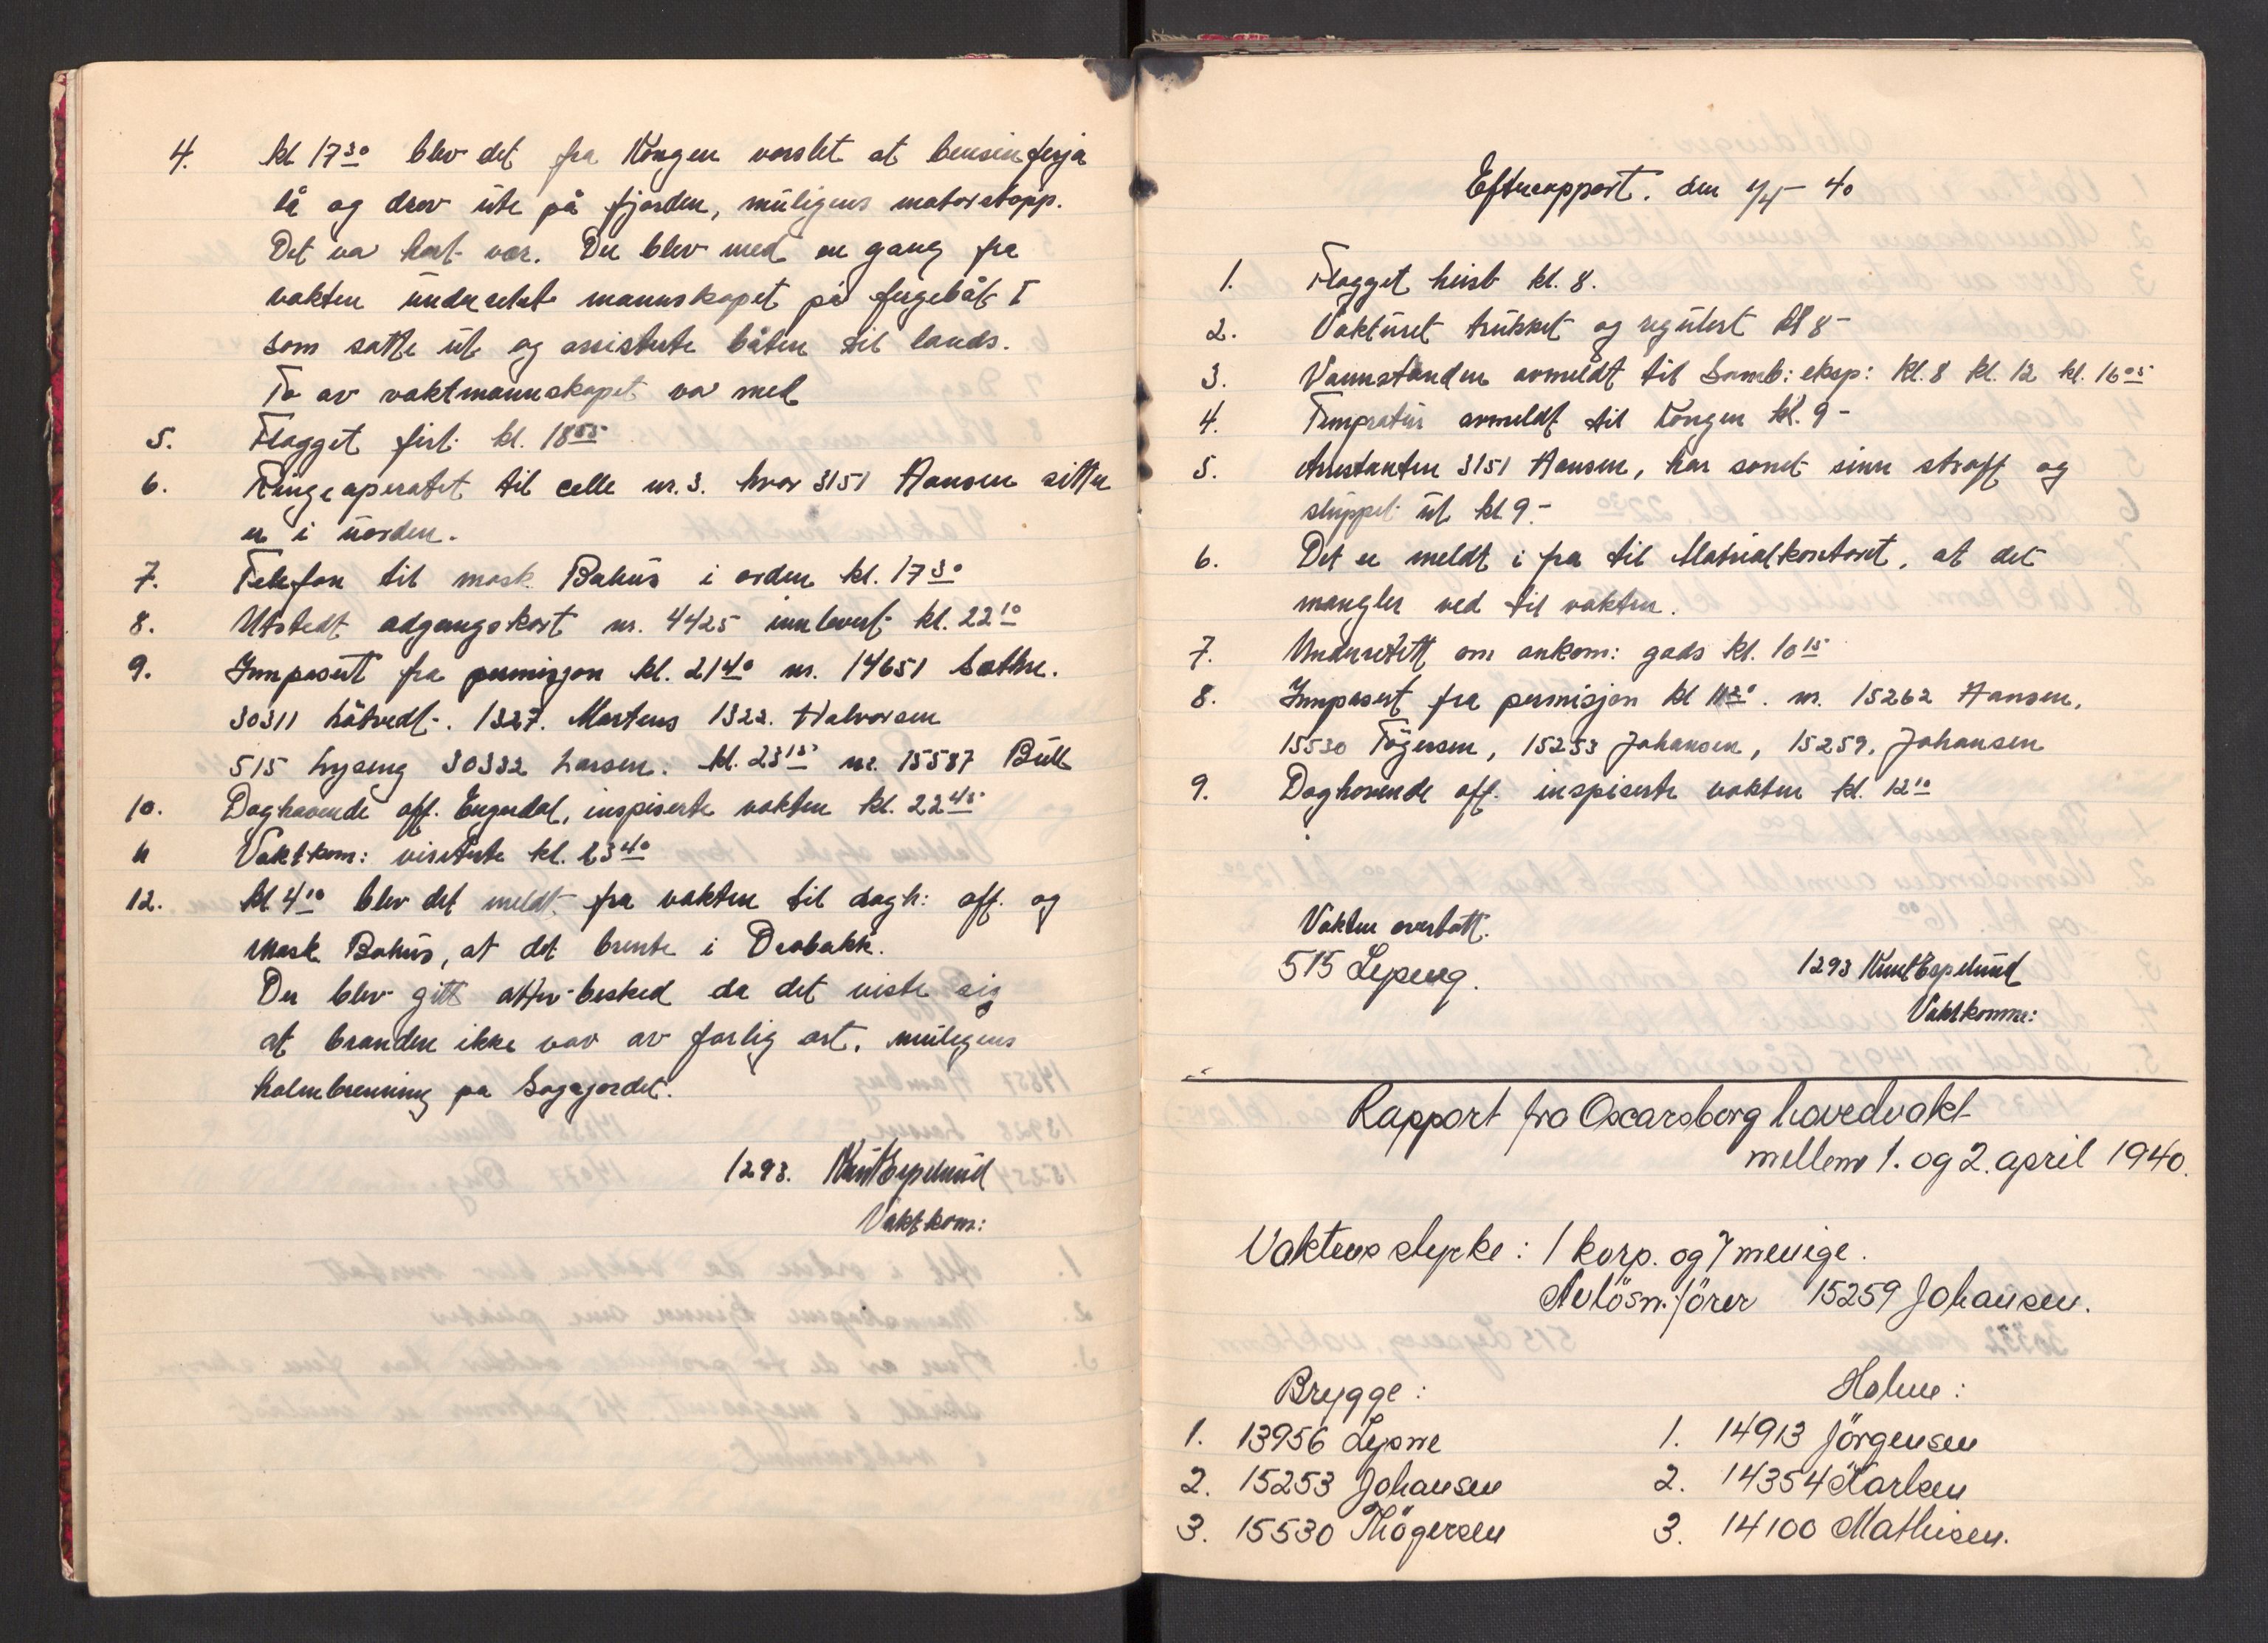 4. kl 17³⁰ blev det fra Kongen varslet at bensinferja
lå og drev ute på fjorden, muligens motorstopp.
Det va hart vær. Der blev med en gang fra
vakten underrettet mannskapet på fergebåt I
som satte ut og assisterte båten til lands.
To av vaktmannskapet va med
5. Flagget firt kl. 18⁵⁵
6. Ringeaperatet til celle nr. 3. hvor 3151 Hansen sitter
er i uorden.
7. Telefon til mask. Bahus i orden kl. 17³⁰
8. Utstedt adgangskort nr. 4425 innlevert kl. 22¹⁰
9. Innpasert fra permisjon kl. 21⁴⁰ nr. 14651 Sæthre.
30311 Låtvedt. 1327. Martens 1322. Halvorsen
515 Lyseng 30332 Larsen. kl. 23¹⁵ nr. 15587 Bull
10. Daghavende off. Engerdal, inspiserte vakten kl. 22⁴⁵
11 Vaktkom: visiterte kl. 23⁴⁰
12. kl 4¹⁰ blev det meldt fra vakten til dagh: off. og
Mask Bahus, at det brente i Drøbakk.
Der blev gitt atter besked da det viste sig
at branden ikke var av farlig art, muligens
halmbrenning på Sogsjordet.
1293. Knut Espelund
Vaktkom:
Efterrapport. den 1/4 - 40
1. Flagget heist kl. 8.
2. Vakturet trukket og regulert kl 8 -
3. Vannstanden avmeldt til Samb: eksp: kl. 8 kl. 12 kl. 16⁰⁵
4. Tempratur avmeldt til Kongen kl. 9 -
5. Arrestanten 3151 Hansen, har sonet sinn straff og
sluppet ut kl 9. -
6. Det er meldt i fra til Matrialkontoret, at det
mangler ved til vakten.
7. Underrettt om ankom: gods kl. 10¹⁵
8. Innpasert fra permisjon kl 11²⁰. nr. 15262 Hansen,
15530 Tøgersen, 15253 Johansen, 15259, Johansen
9. Daghavende off. inspiserte vakten kl. 12¹⁰
Vakten overtatt.
515 Lyseng. 1293 Knut Espelund
Vaktkomm:
Rapport fra Oscarsborg hovedvakt
mellem 1. og 2. april 1940.
Vaktens styrke: 1 korp. og 7 menige.
Avlösn. förer 15259 Johansen.
Brygge: Holme:
1. 13956 Lysne 1. 14913 Jörgensen
2. 15253 Johansen 2. 14354 Karlsen
3. 15530 Thögersen 3. 14100 Mathisen.